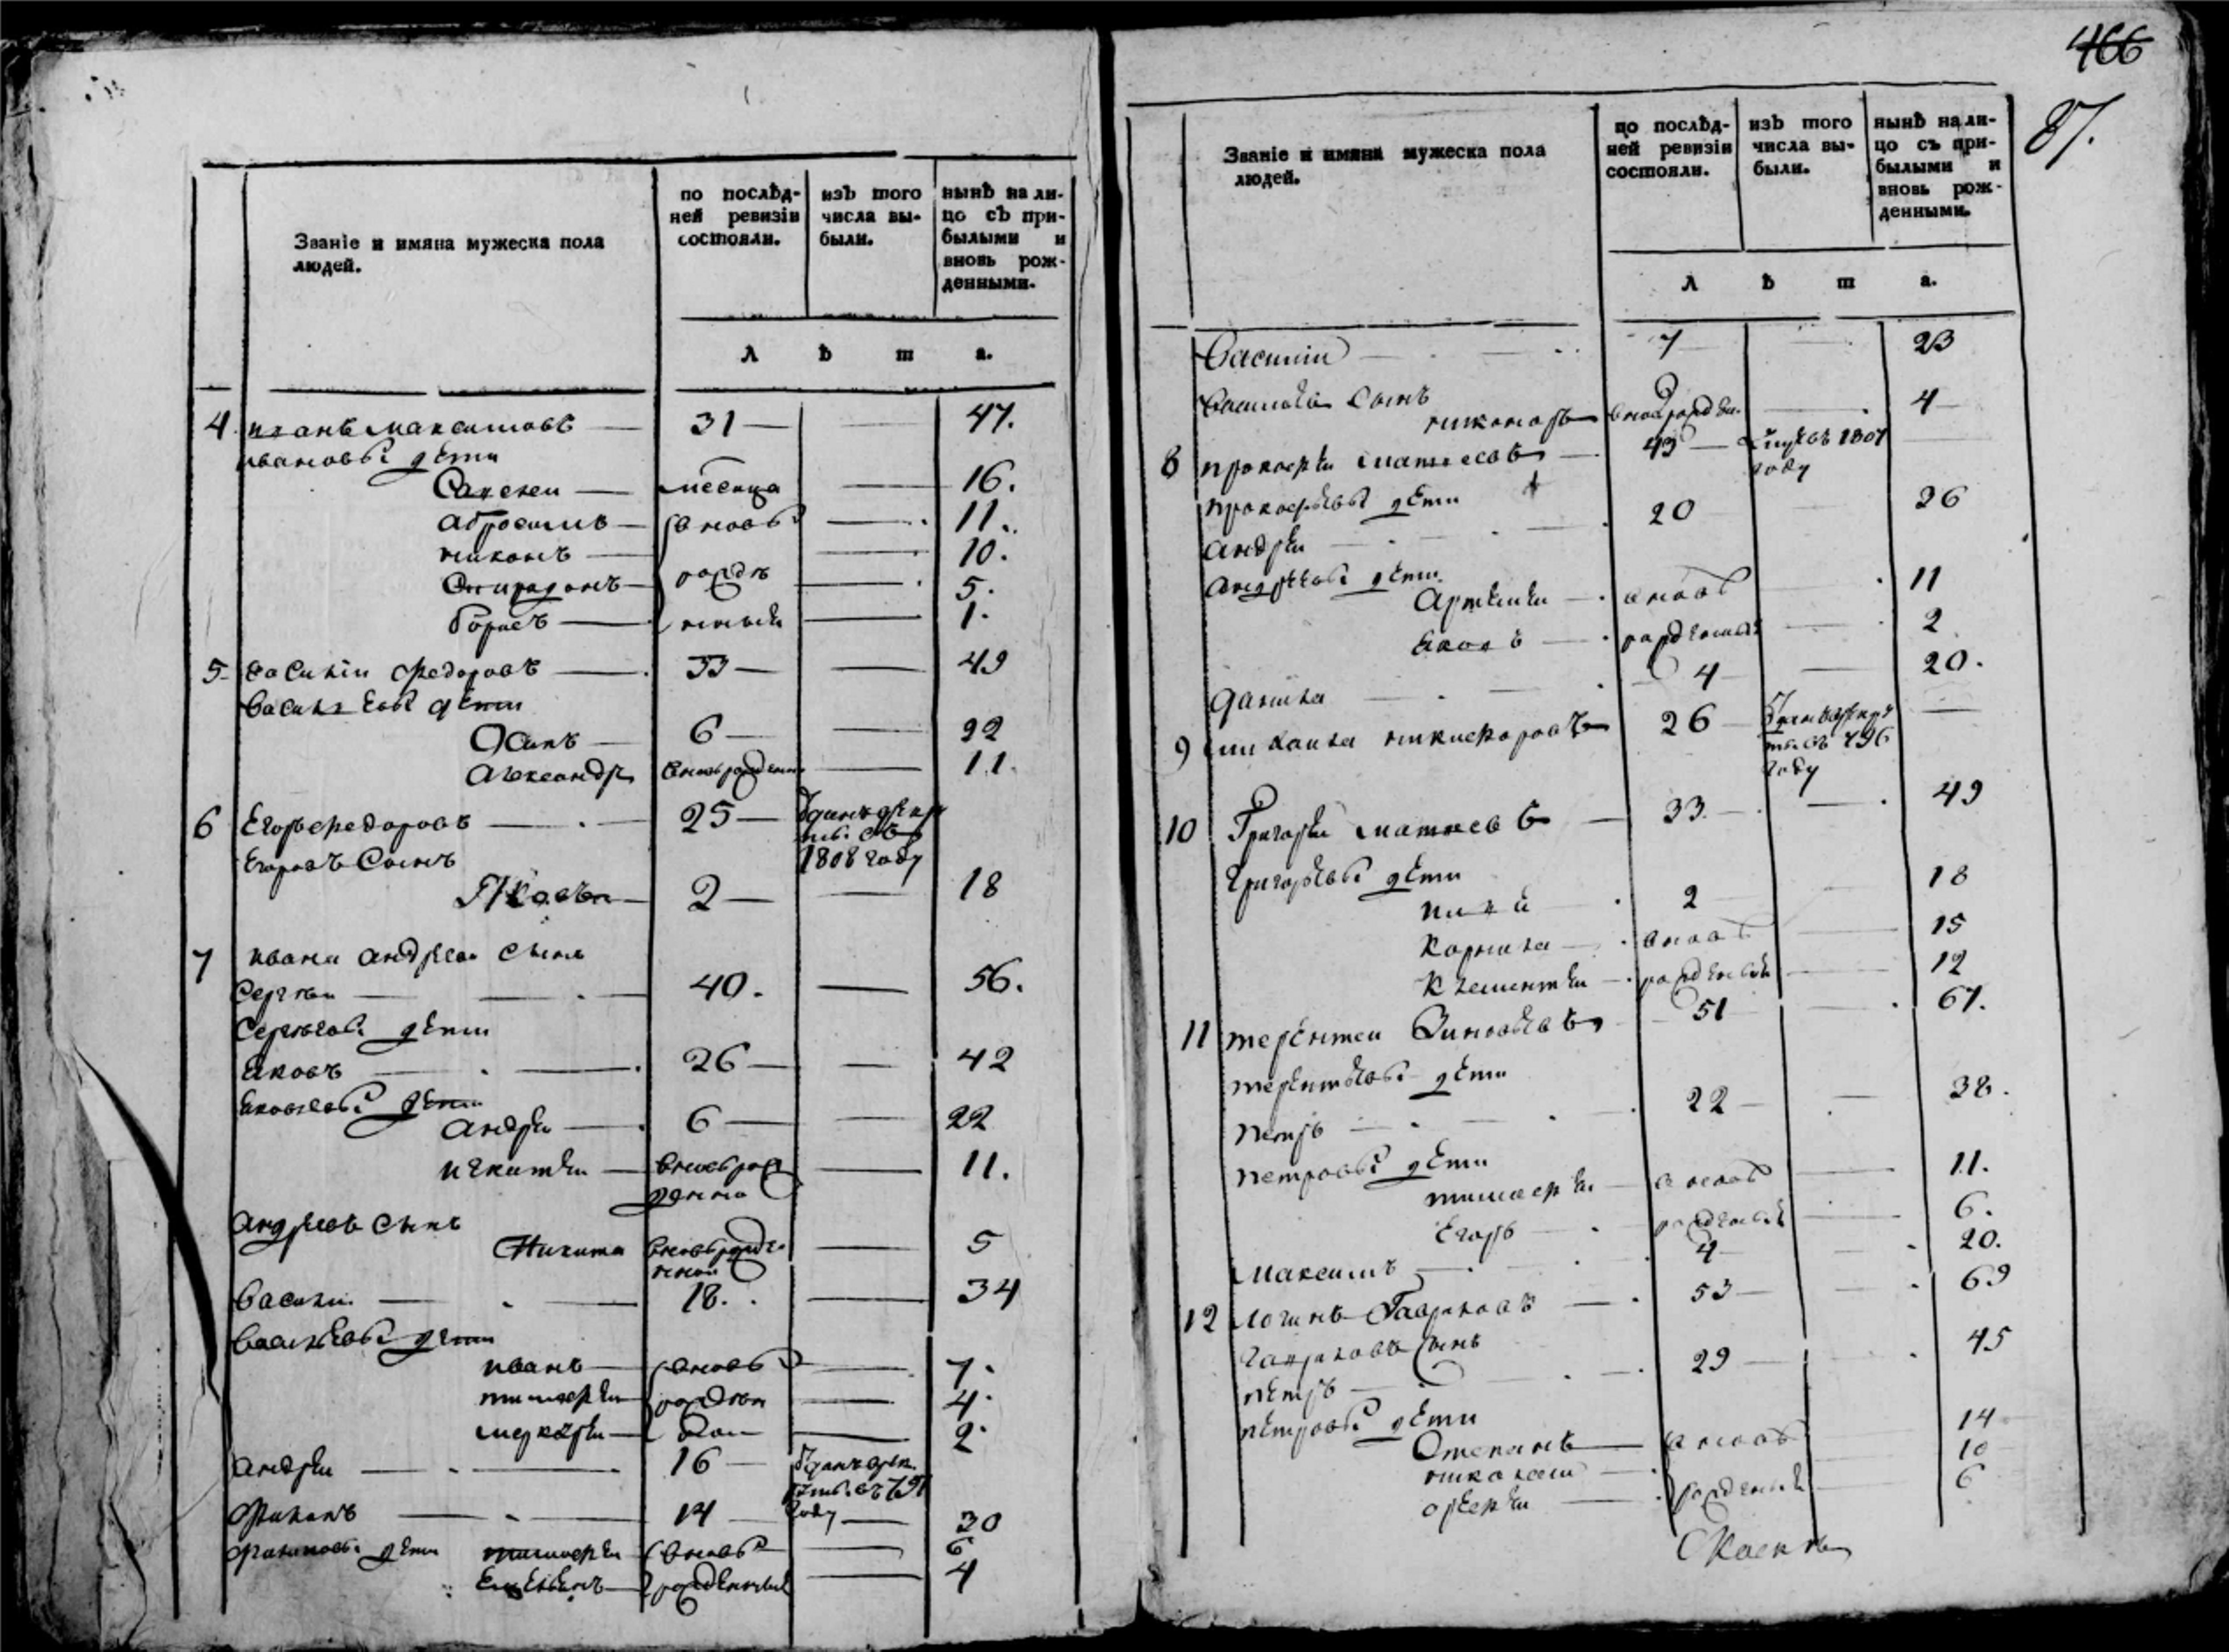 Званіе и имяна мужеска пола
людей.
по послѣд-
ней ревизіи
состояли.
изъ того
числа вы-
были.
нынѣ на ли-
цо съ при-
былыми и
вновь рож-
денными.
л ѣ т а.
4 иванъ максимовъ — 31 — — 47.
ивановы дети
Алексеи — месеца — 16.
абросимъ — вновь — 11.
никонъ — — 10.
Спиридонъ — рожде — 5.
борисъ — нныи — 1.
5 василіи федоровъ — 33 — — 49
васильевы дети
Осипъ — 6 — — 22
александръ вновьрожден — 11.
6 Егоръ федоровъ — 25 —
1808 году
Егоровъ Сынъ
Яковъ — 2 — — 18
7 ивана андреева сына
Сергеи — 40. — 56.
Сергеевы дети
яковъ — 26 — — 42
яковлевы дети
андреи — 6 — — 22
— вновьрож — 11.
денно
андреевъ сынъ
Никита вновьрожде — 5
нной
василеи — 18. — 34
васильевы дети
иванъ — вновь — 7.
тимофеи — рожден — 4.
меркуреи — — 2.
андреи — 16 —
году
филипъ — 14 — — 30
филиповы дети тимофеи — вновь — 6
Емельянъ — рожденныя — 4
466
87.
Званіе и имяна мужеска пола
людей.
по послѣд-
ней ревизіи
состояли.
изъ того
числа вы-
были.
нынѣ на ли-
цо съ при-
былыми и
вновь рож-
денными.
л ѣ т а.
Василіи — 7 — 23
васильевъ Сынъ
никаноръ — вновьрожден — 4
8 прокофеи матвеевъ — 43 — умре въ 1807
году
прокофьевы дети
андреи — 20 — 26
андреевы дети
Артемеи — вновь — 11
яковъ — рожденныя — 2
данила — 4 — 20.
9 никифоровъ — 26 —
796
году
10 Григореи матвеевъ — 33 — — 49
григорьевы дети
— 2 — 18
корнила — вновь — 15
клементеи — рожденныи — 12
11 терентеи Зиновьевъ — 51 — 67.
терентьевы дети
петръ — 22 — 38.
петровы дети
тимофеи — вновь — 11.
Егоръ — рожденныя — 6.
максимъ — 4 — 20.
12 логинъ Гавриловъ — 53 — 69
гавриловъ Сынъ
петръ — 29 — 45
петровы дети
Степанъ — вновь — 14
николаи — 10
арефеи — рожденныя — 6